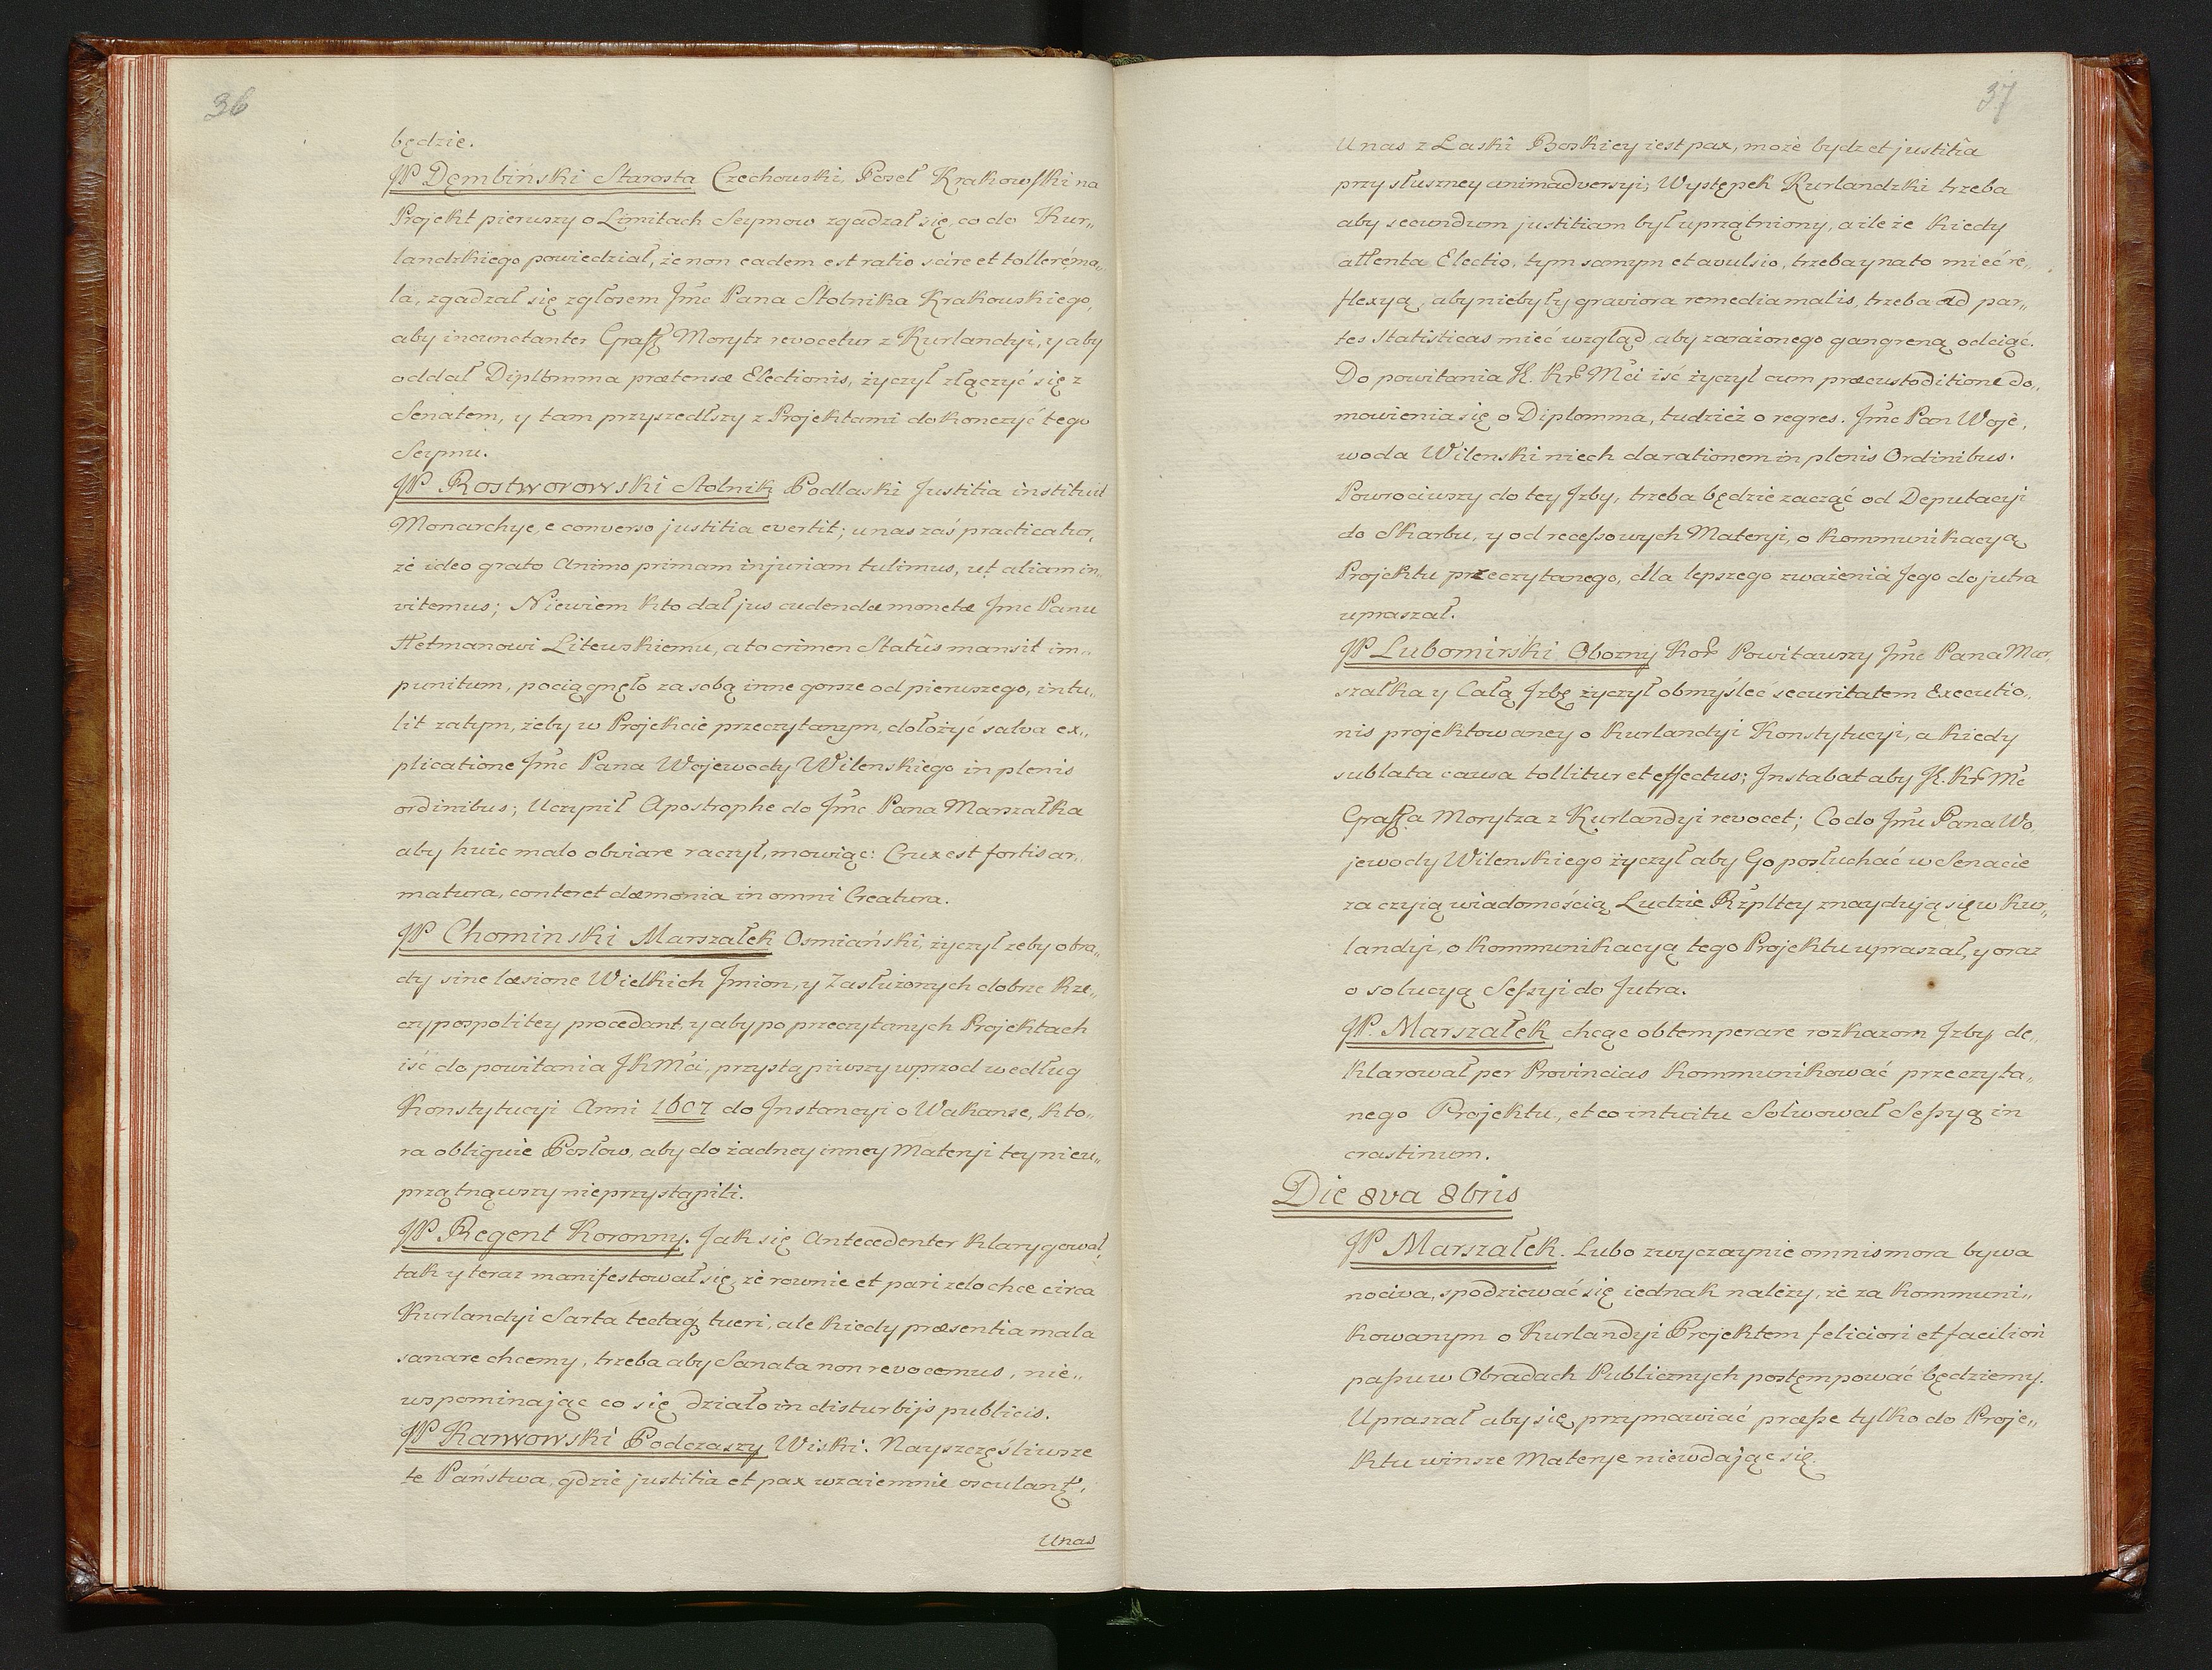 36
będzie.
JP Dembiński Starosta Czechowski, Poseł Krakowski na
Projekt pierwszy o Limitach Seymow zgadzał się, co do Kur„
landzkiego powiedział, że non eadem est ratio scire et tollere ma„
la, zgadzał się z głosem Jmc Pana Stolnika Krakowskiego,
aby incunctanter Graff Morytz revocetur z Kurlandyi, y aby
oddał Diplomma prætensæ Electionis, życzył złączyć się z
Senatem, y tam przyszedłszy z Projektami dokonczyć tego
Seymu.
JP Rostworowski Stolnik Podlaski Justitia instituit
Monarchye, e converso justitia evertit; u nas zaś practicatur,
że ideo grato Animo primam injuriam tulimus, ut aliam in„
vitemus; Niewiem kto dał jus cudendæ monetæ Jmc Panu
Hetmanowi Litewskiemu, a to crimen Statûs mansit im„
punitum, pociągnęło za sobą inne gorsze od pierwszego, intu„
lit zatym, żeby w Projekcie przeczytanym, dołożyć salva ex„
plicatione Jmc Pana Wojewody Wilenskiego in plenis
ordinibus; Uczynił Apostrophe do Jmc Pana Marszałka
aby huic malo obviare raczył, mowiąc: Crux est fortis ar„
matura, conteret dæmonia in omni Creatura.
JP Chominski Marszałek Osmiański, życzył żeby obra„
dy sine læsione Wielkich Jmion, y Zasłużonych dobrze Rze„
czypospolitey procedant, y aby po przeczytanych Projektach
iść do powitania JKMci, przystąpiwszy wprzod według
Konstytucyi Anni 1607 do Jnstancyi o Wakanse, kto„
ra obliguie Posłow, aby do żadney inney Materyi tey nieu„
przątnąwszy nie przystąpili.
JP Regent Koronny. Jak się Antecedenter klarygował
tak y teraz manifestował się, że rownie et pari zelo chce circa
Kurlandyi Sarta tectaq tueri, ale kiedy præsentia mala
sanare chcemy, trzeba aby Sanata non revocemus, nie„
wspominając co się działo in disturbijs publicis.
JP Karwowski Podczaszy Wiski. Nayszczęśliwsze
te Państwa, gdzie justitia et pax wzaiemnie osculant,
Unas
37
Unas z Laski Boskiey iest pax, może bydz et justitia
przy słuszney animadversyi; Występek Kurlandzki trzeba
aby secundum justitiam był uprzątniony, a ile że kiedy
attenta Electio, tym samym et avulsio, trzeba y na to mieć re„
flexyą, aby niebyły graviora remedia malis, trzeba ad par„
tes Statisticas mieć wzgląd aby zarażonego gangreną odciąć.
Do powitania K. Kr Mci iść życzył cum præcustoditione do„
mowienia się o Diplomma, tudzież o regres. Jmc Pan Woje„
woda Wilenski niech da rationem in plenis Ordinibus.
Powrociwszy do tey Jzby, trzeba będzie zacząć od Deputacyi
do Skarbu, y od recessowych Materyi, o kommunikacyą
Projektu przeczytanego, dla lepszego zważenia Jego do jutra
upraszał.
JP Lubomirski Obozny Kor Powitawszy Jmc Pana Mar„
szałka y Całą Jzbę życzył obmyśleć securitatem Executio„
nis projektowaney o Kurlandyi Konstytucyi, a kiedy
sublata causa tollitur et effectus; Jnstabat aby K. Kr Mc
Graffa Morytza z Kurlandyi revocet; Co do Jmc Pana Wo„
jewody Wilenskiego życzył aby Go posłuchać w Senacie
za czyią wiadomością Ludzie Rzpltey znaydują się w Kur„
landyi, o kommunikacyą tego Projektu upraszał, y oraz
o solucyą Sessyi do Jutra.
JP. Marszałek chcąc obtemperare rozkazom Jzby de„
klarował per Provincias kommunikować przeczyta„
nego Projektu, et eo intuitu Solwował Sessyą in
crastinum.
Die 8va 8bris
JP Marszałek. Lubo zwyczaynie omnis mora bywa
nociva, spodziewać się iednak należy, że za kommuni„
kowanym o Kurlandyi Projektem feliciori et faciliori
passu w Obradach Publicznych postempować będziemy.
Upraszał aby się przymawiać præsse tylko do Proje„
ktu w insze Materye niewdając się.